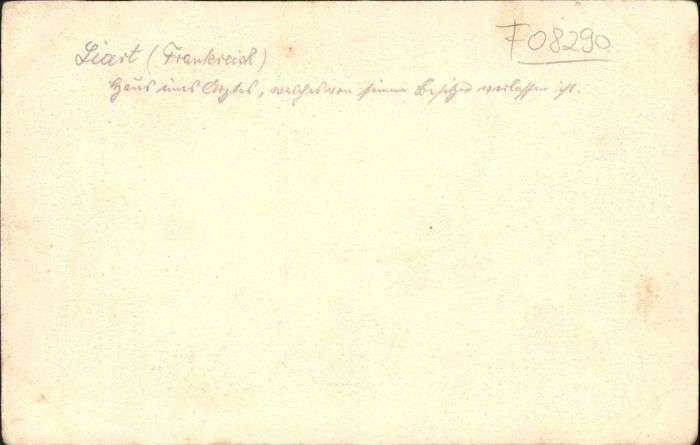 F08290
Liart (Frankreich)
Haus eines Arztes, welches von seinem Besitzer verlassen ist.